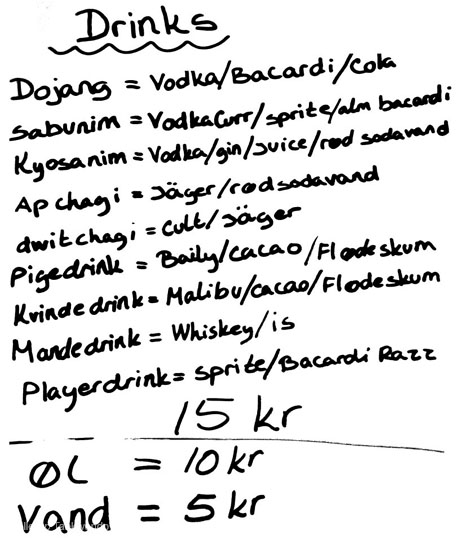 Drinks
Dojang = Vodka/Bacardi/Cola
Sabunim = VodkaCurr/sprite/alm bacardi
Kyosanim = Vodka/gin/Juice/rød sodavand
Ap chagi = Jäger/rødsodavand
dwitchagi = Cult/Jäger
Pigedrink = Baily/cacao/Flødeskum
Kvindedrink = Malibu/cacao/Flødeskum
Mandedrink = Whiskey/is
Playerdrink = sprite/Bacardi Razz
15 kr
ØL = 10 kr
Vand = 5 kr